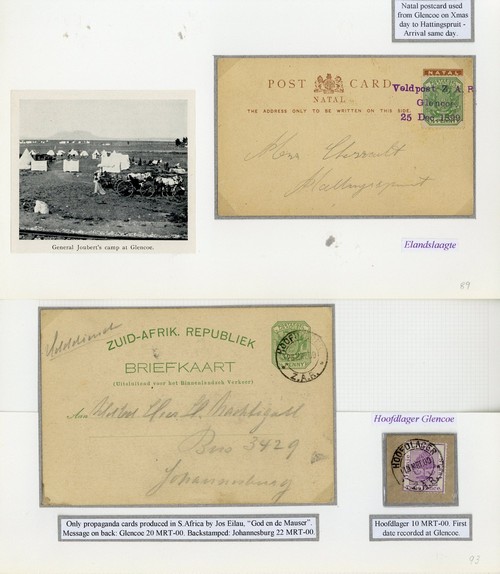 Natal postcard used
from Glencoe on Xmas
day to Hattingspruit -
Arrival same day.
POST CARD
NATAL
THE ADDRESS ONLY TO BE WRITTEN ON THIS SIDE
NATAL
Veldpost Z.A.R
Glencoe
25 Dec. 1899
Hattingspruit
General Joubert's camp at Glencoe.
Elandslaagte
89
ZUID-AFRIK. REPUBLIEK
BRIEFKAART
(Uitsluitend voor het Binnenlandsch Verkeer)
HOOFD
Z.A.R.
Aan
Heer
Box 3429
Johannesburg
Hoofdlager Glencoe
HOOFDLAGER
Z.A.R.
Only propaganda cards produced in S.Africa by Jos Eilau. "God en de Mauser".
Message on back: Glencoe 20 MRT-00. Backstamped: Johannesburg 22 MRT-00.
Hoofdlager 10 MRT-00. First
date recorded at Glencoe.
93